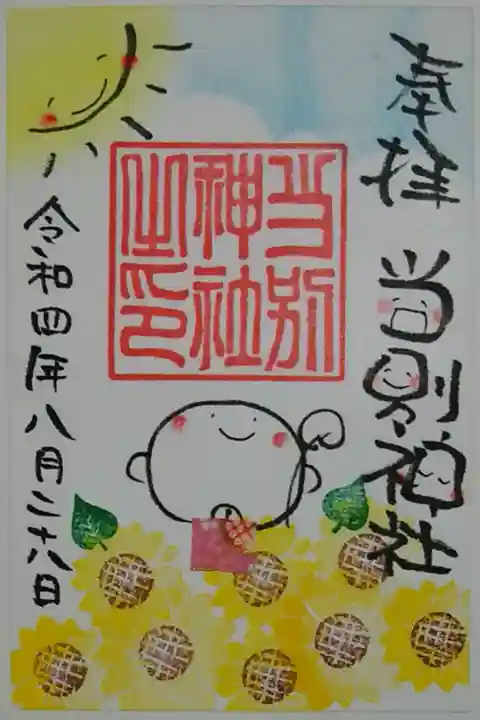 奉拝 当別神社
当別
神社
之印
令和四年八月二十八日